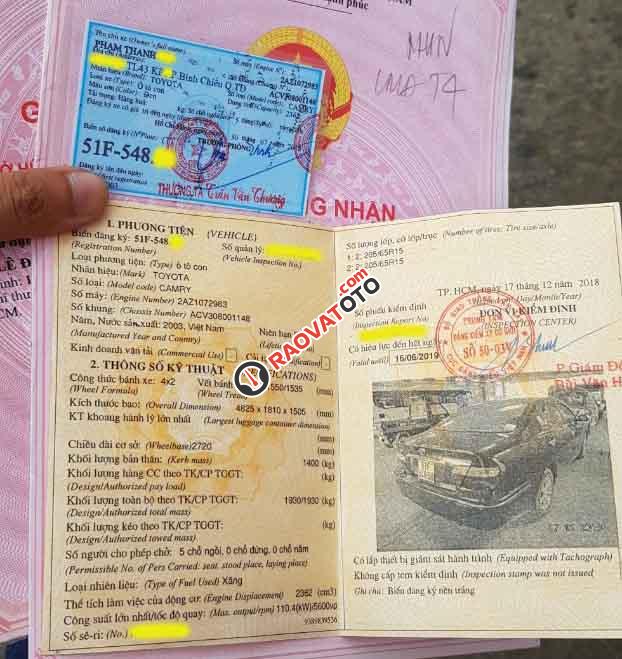 MHN
UMA T4
Tên chủ xe (Owner's full name):
PHẠM THANH
TL43 KP P Bình Chiểu Q.TĐ
Nhãn hiệu (Brand): TOYOTA
2AZ1072983
Loại xe (Type): Ô tô con
Số loại (Model code): CAMRY
Màu sơn (Color): Đen
ACV308001148
Tải trọng: Hàng hoá:
TRƯỞNG PHÒNG
Biển số đăng ký (N°Plate)
51F-548.
Đăng ký lần đầu ngày:
THƯỢNG TÁ Trần Văn Thương
NG NHẬN
1. PHƯƠNG TIỆN (VEHICLE)
Biển đăng ký: 51F-548
(Registration Number)
Số quản lý:
(Vehicle Inspection No.)
Loại phương tiện: (Type) ô tô con
Nhãn hiệu: (Mark) TOYOTA
Số loại: (Model code) CAMRY
Số máy: (Engine Number) 2AZ1072983
Số khung: (Chassis Number) ACV308001148
Năm, Nước sản xuất: 2003, Việt Nam
Niên hạn
(Manufactured Year and Country)
Kinh doanh vận tải (Commercial Use)
2. THÔNG SỐ KỸ THUẬT
Công thức bánh xe: 4x2
Vết bánh
550/1535 (mm)
(Wheel Formula)
(Wheel Tread)
Kích thước bao: (Overall Dimension) 4825 x 1810 x 1505 (mm)
KT khoang hành lý lớn nhất (Largest luggage container dimension)
(mm)
Chiều dài cơ sở: (Wheelbase) 2720 (mm)
Khối lượng bản thân: (Kerb mass) 1400 (kg)
Khối lượng hàng CC theo TK/CP TGGT: (kg)
(Design/Authorized pay load)
Khối lượng toàn bộ theo TK/CP TGGT: 1930/1930 (kg)
(Design/Authorized total mass)
Khối lượng kéo theo TK/CP TGGT: (kg)
(Design/Authorized towed mass)
Số người cho phép chở: 5 chỗ ngồi, 0 chỗ đứng, 0 chỗ nằm
(Permissible No. of Pers Carried: seat, stood place, laying place)
Loại nhiên liệu: (Type of Fuel Used) Xăng
Thể tích làm việc của động cơ: (Engine Displacement) 2362 (cm3)
Công suất lớn nhất/tốc độ quay: (Max. output/rpm) 110.4(kW)/5600vp
Số sê-ri: (No.)
9389839536
Số lượng lốp, cỡ lốp/trục (Number of tires; Tire size/axle)
1: 2; 205/65R15
2: 2; 205/65R15
TP. HCM, ngày 17 tháng 12 năm 2018
(Day/Month/Year)
Số phiếu kiểm định
(Inspection Report No)
ĐƠN VỊ KIỂM ĐỊNH
(INSPECTION CENTER)
Có hiệu lực đến hết ngày
(Valid until) 16/06/2019
SỐ 50-03V
P.Giám Đố
RAOVATOTO.COM
Có lắp thiết bị giám sát hành trình (Equipped with Tachograph)
Không cấp tem kiểm định (Inspection stamp was not issued)
Ghi chú: Biển đăng ký nền trắng